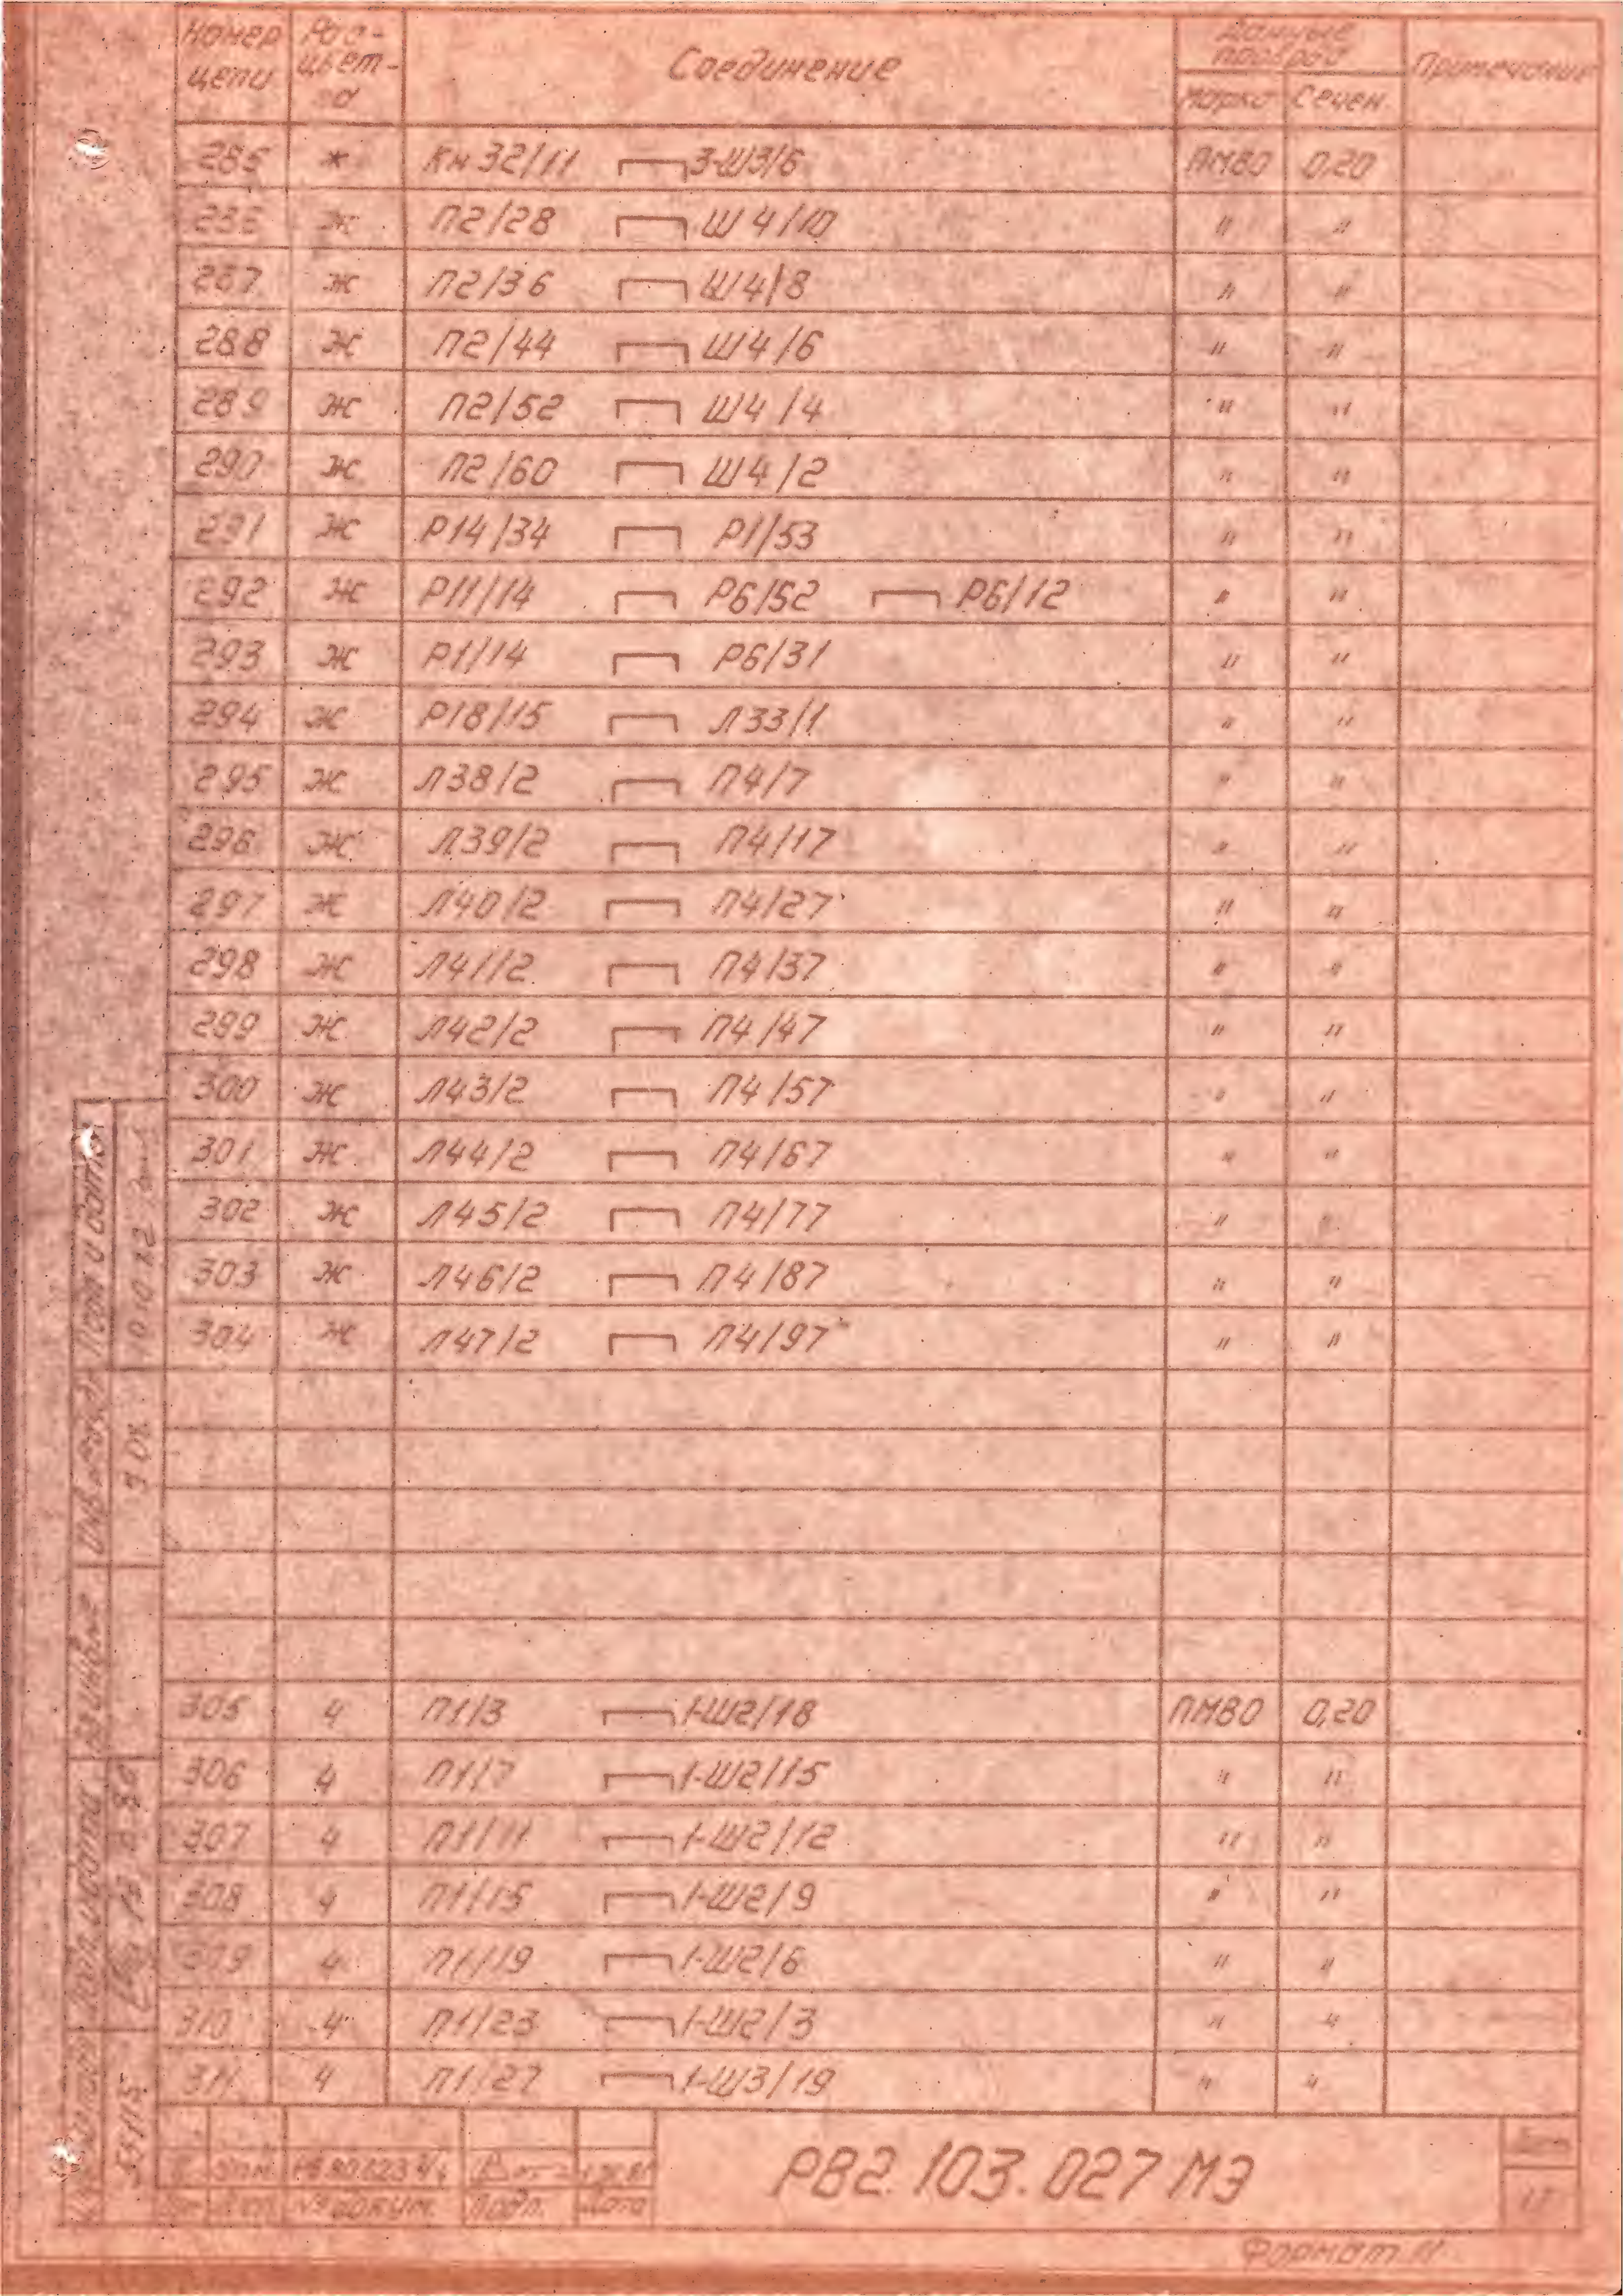 Номер цепи Рас-цвет-ка Соединение Данные провода Примечание
Марка Сечен.
285 ж Кн32/11 3-Ш3/6 ПМВО 0,20
286 ж П2/28 Ш4/10 " "
287 ж П2/36 Ш4/8 " "
288 ж П2/44 Ш4/6 " "
289 ж П2/52 Ш4/4 " "
290 ж П2/60 Ш4/2 " "
291 ж Р14/34 Р1/53 " "
292 ж Р11/14 Р6/52 Р6/12 " "
293 ж Р1/14 Р6/31 " "
294 ж Р18/15 Л33/1 " "
295 ж Л38/2 П4/7 " "
296 ж Л39/2 П4/17 " "
297 ж Л40/2 П4/27 " "
298 ж Л41/2 П4/37 " "
299 ж Л42/2 П4/47 " "
300 ж Л43/2 П4/57 " "
301 ж Л44/2 П4/67 " "
302 ж Л45/2 П4/77 " "
303 ж Л46/2 П4/87 " "
304 ж Л47/2 П4/97 " "
305 ч П1/3 1-Ш2/18 ПМВО 0,20
306 ч П1/7 1-Ш2/15 " "
307 ч П1/11 1-Ш2/12 " "
308 ч П1/15 1-Ш2/9 " "
309 ч П1/19 1-Ш2/6 " "
310 ч П1/23 1-Ш2/3 " "
311 ч П1/27 1-Ш3/19 " "
Подп и дата
Взинв№
Подп. и дата
55115
№ докум. Подп. Дата
РВ2.103.027 МЭ
Лист
Формат 11